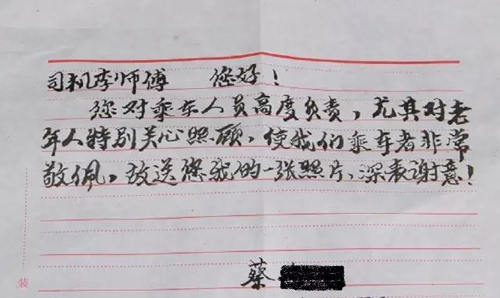 司机李师傅 您好！
您对乘车人员高度负责，尤其对老
年人特别关心照顾，使我们乘车者非常
敬佩。故送您我的一张照片，深表谢意！
蔡
装